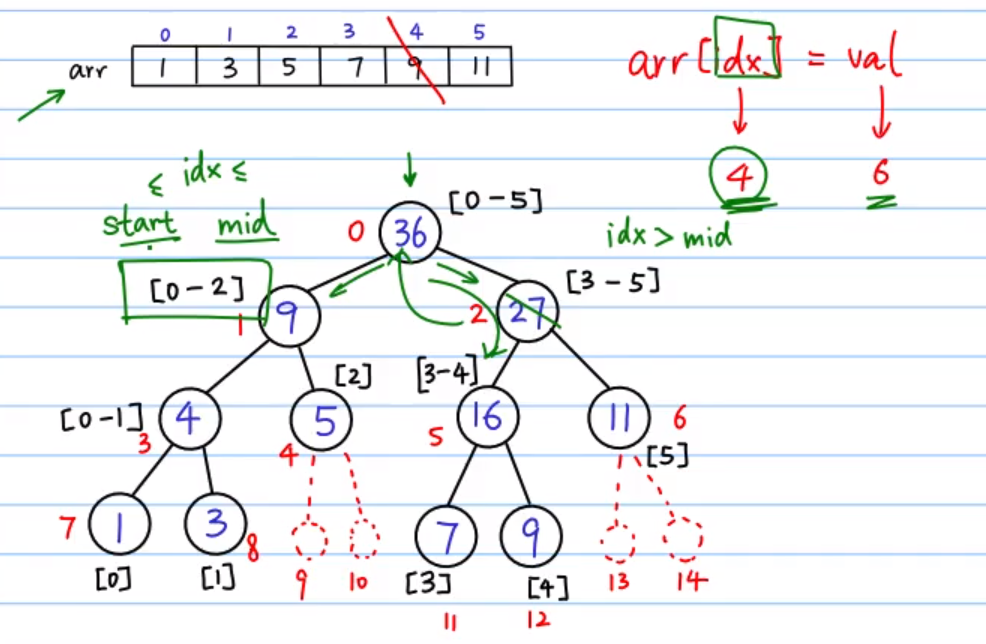 0 1 2 3 4 5
arr 1 3 5 7 9 11
arr[idx] = val
4 6
≤ idx ≤
start mid
idx > mid
0 36 [0-5]
[0-2] 1 9
2 27 [3-5]
[0-1] 3 4
4 5 [2]
[3-4] 5 16
11 6 [5]
7 1 3 8 9 10 7 9 13 14
[0] [1] [3] [4]
11 12